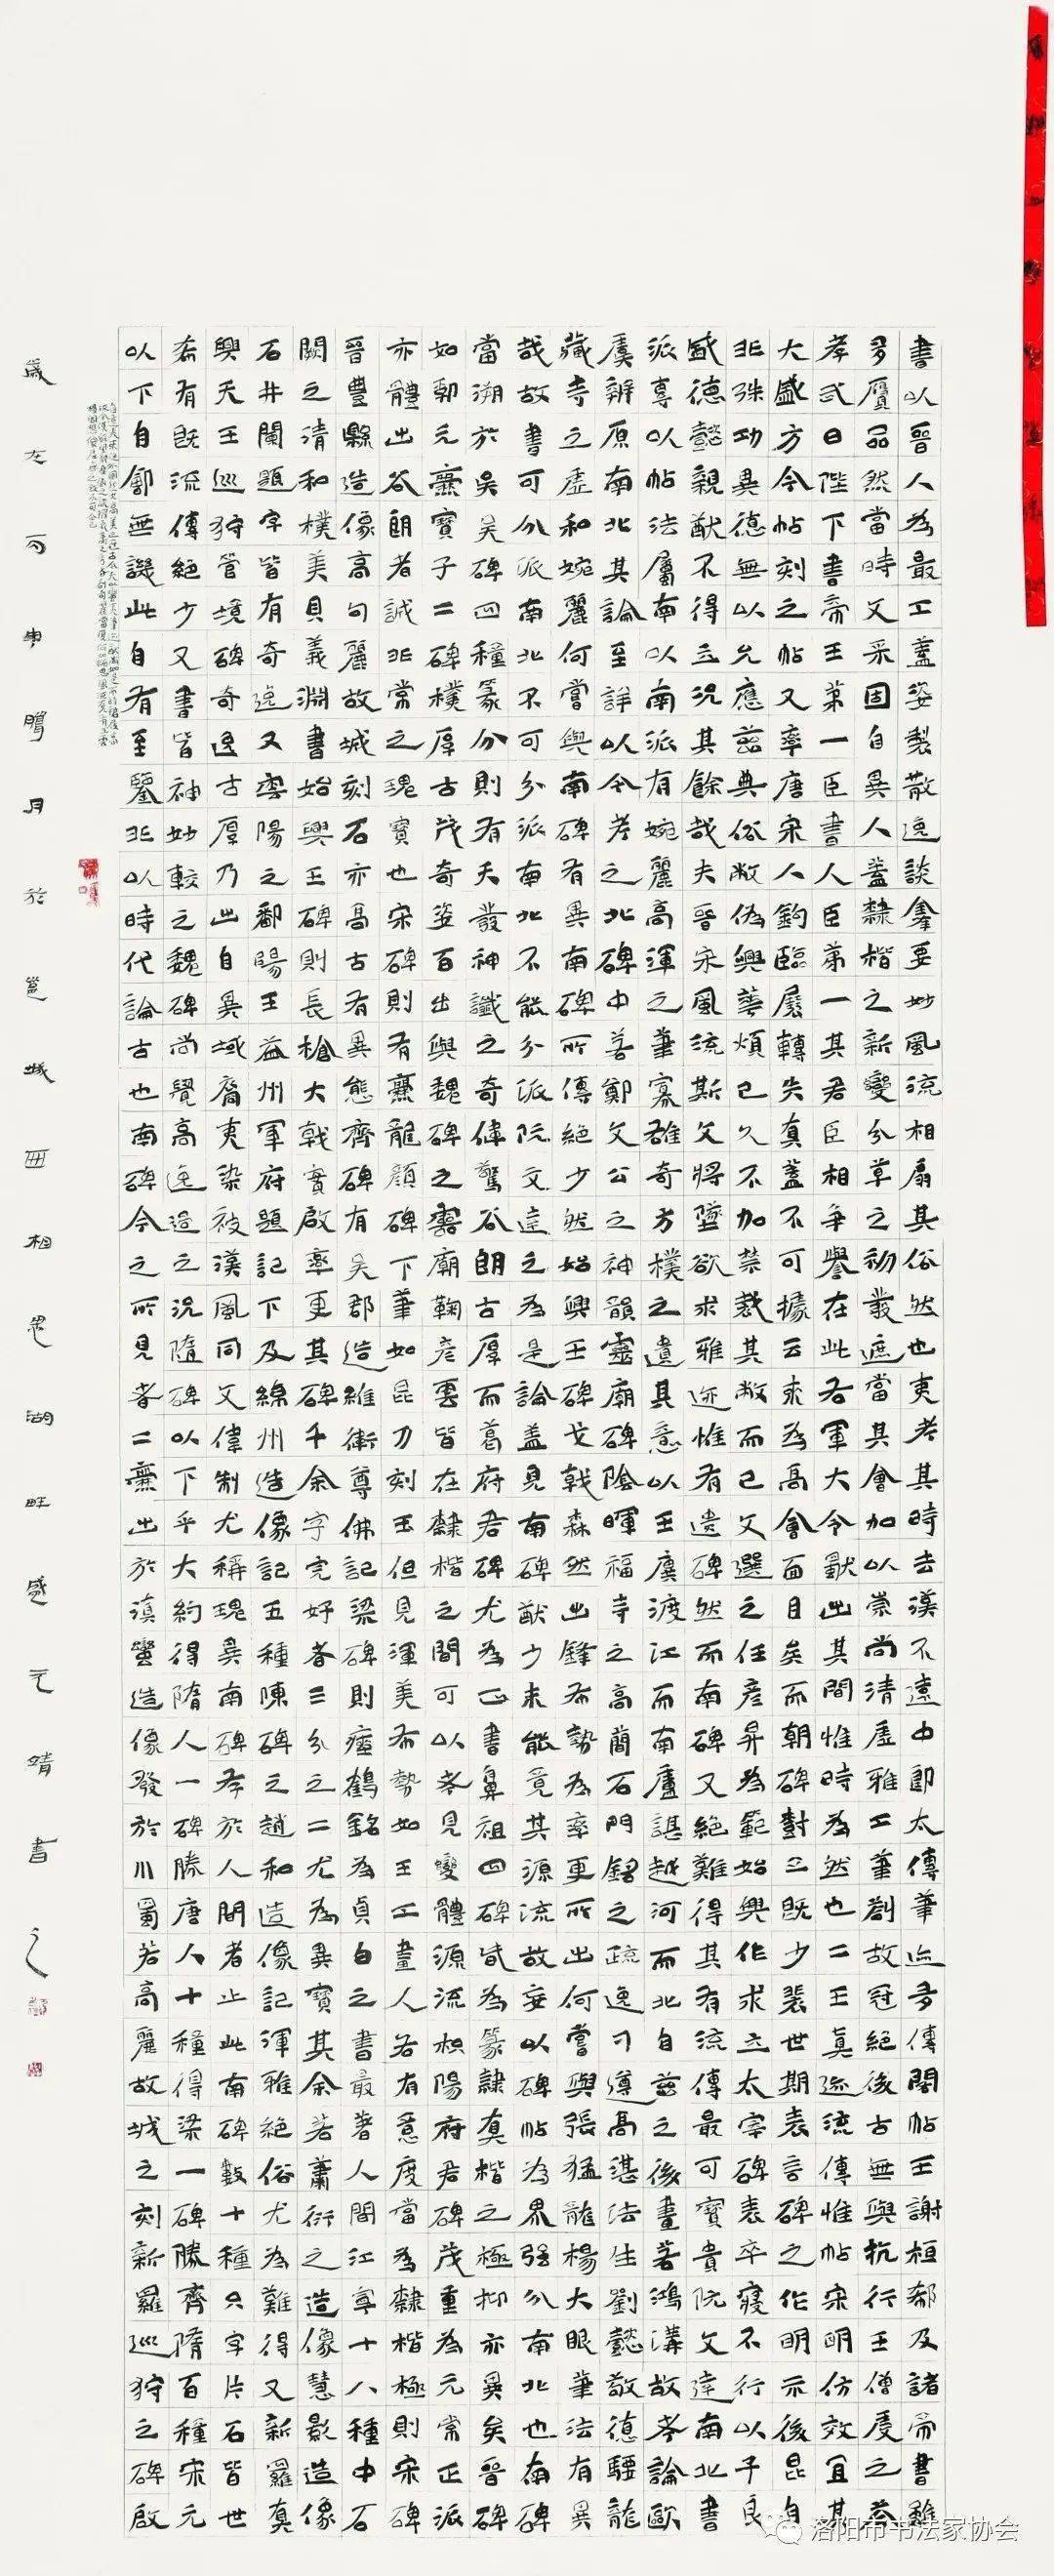 書以晉人為最工蓋姿製散逸談鋒要妙風流相扇其俗然也夷考其時去漢不遠中郎太傅筆迹多傳閣帖王謝桓郗及諸帝書雖
多贋品然當時文采固自異人蓋隸楷之新變分草之初發遮當其會加以崇尚清虛雅工筆劄故冠絕後古無與抗行王僧虔之答
孝武曰陛下書帝王第一臣書人臣第一其君臣相爭譽在此右軍大令獻出其間惟時為然也二王真迹流傳惟帖宋明仿效宜其
大盛方今帖刻之帖又率唐宋人鈎臨展轉失真蓋不可據云來為高會面目矣而朝碑對三既少裴世期表言碑之作明示後昆自
非殊功異德無以允應茲典俗敝偽興華煩已久不加禁裁其敝而已文選之任彥昇為範始興作求立太宰碑表卒寢不行以子良
盛德懿親猷不得立況其餘哉夫晉宋風流斯文將墜欲求雅迹惟有遺碑然而南碑又絕難得其有流傳最可寶貴阮文達南北書
派專以帖法屬南以南派有婉麗高渾之筆寡雄奇方樸之遺其意以王廙渡江而南盧諶越河而北自茲之後畫著鴻溝故考論歐
虞辨原南北其論至詳以今考之北碑中善鄭文公之神韻靈廟碑陰暉福寺之高簡石門銘之疏逸刁遵高湛法生劉懿敬德騷龍
藏寺之虛和婉麗何嘗與南碑有異南碑所傳絕少然始興王碑戈戟森然出鋒布勢為率更所出何嘗與張猛龍楊大眼筆法有異
哉故書可分派南北不可分派南北不能分派阮文達之為是論蓋見南碑猷少未能竟其源流故妄以碑帖為界強分南北也南碑
當溯於吳吳碑四種篆分則有天發神讖之奇偉驚谷朗古厚而葛府君碑尤為正書鼻祖四碑皆為篆隸真楷之極抑亦異矣晉碑
如郛元爨寶子二碑樸厚古茂奇姿百出與魏碑之靈廟鞠彥雲皆在隸楷之間可以考見變體源流枳陽府君碑茂重為元常正派
亦體出谷朗者誠非常之瑰寶也宋碑則有爨龍顏碑下筆如昆刀刻玉但見渾美布勢如王工畫人若有意度當為隸楷極則宋碑
晉豐縣造像高句麗故城刻石亦高古有異態齊碑有吳郡造維衛尊佛記梁碑則瘞鶴銘為貞白之書最著人間江寧十八種中石
闕之清和樸美貝義淵書始興王碑則長槍大戟實啟率更其碑千余字完好者三分之二尤為異寶其余若蕭衍之造像慧影造像
石井闌題字皆有奇逸又率陽之鄱陽王益州軍府題記下及綿州造像記五種陳碑之趙和造像記渾雅絕俗尤為難得又新羅真
興天王巡狩管境碑奇逸古厚乃出自異域裔夷染被漢風同文偉制尤稱瑰異南碑存於人間者止此南碑數十種只字片石皆世
希有既流傳絕少又書皆神妙較之魏碑尚覺高逸過之況隋碑以下乎大約得隋人一碑勝唐人十種得梁一碑勝齊隋百種宋元
以下自鄶無譏此自有至鑒非以時代論古也南碑今之所見者二爨出於滇蠻造像發於川蜀若高麗故城之刻新羅巡狩之碑啟
歲在丙申臘月於邕城西相思湖畔盛元靖書之
洛阳市书法家协会